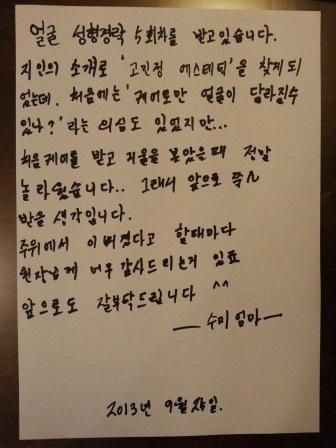 얼굴 성형경락 5회차를 받고있습니다.
지인의 소개로 '고민정 에스테틱'을 찾게되
었는데. 처음에는 '케어로만 얼굴이 달라질수
있나?' 라는 의심도 있었지만...
처음케어를 받고 거울을 본았을때 정말
놀라웠습니다.. 그래서 앞으로 쭉~
받을 생각입니다.
주위에서 이뻐졌다고 할때마다
원장님께 너무 감사드리는거 있죠
앞으로도 잘부탁드립니다 ^^
— 수미 엄마 —
2013년 9월 일.